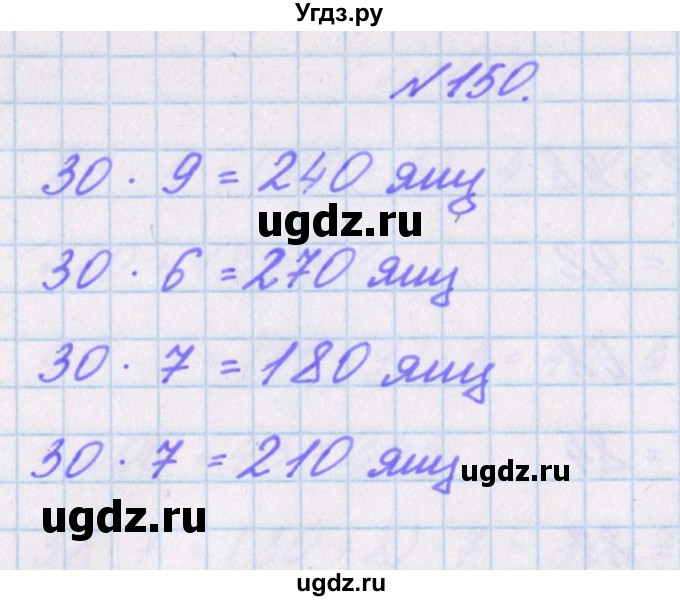 Угдз.ру
№150.
30 · 9 = 240 ящ
ugdz.ru
30 · 6 = 270 ящ
30 · 7 = 180 ящ
30 · 7 = 210 ящ
ugdz.ru
ugdz.ru
ugdz.ru